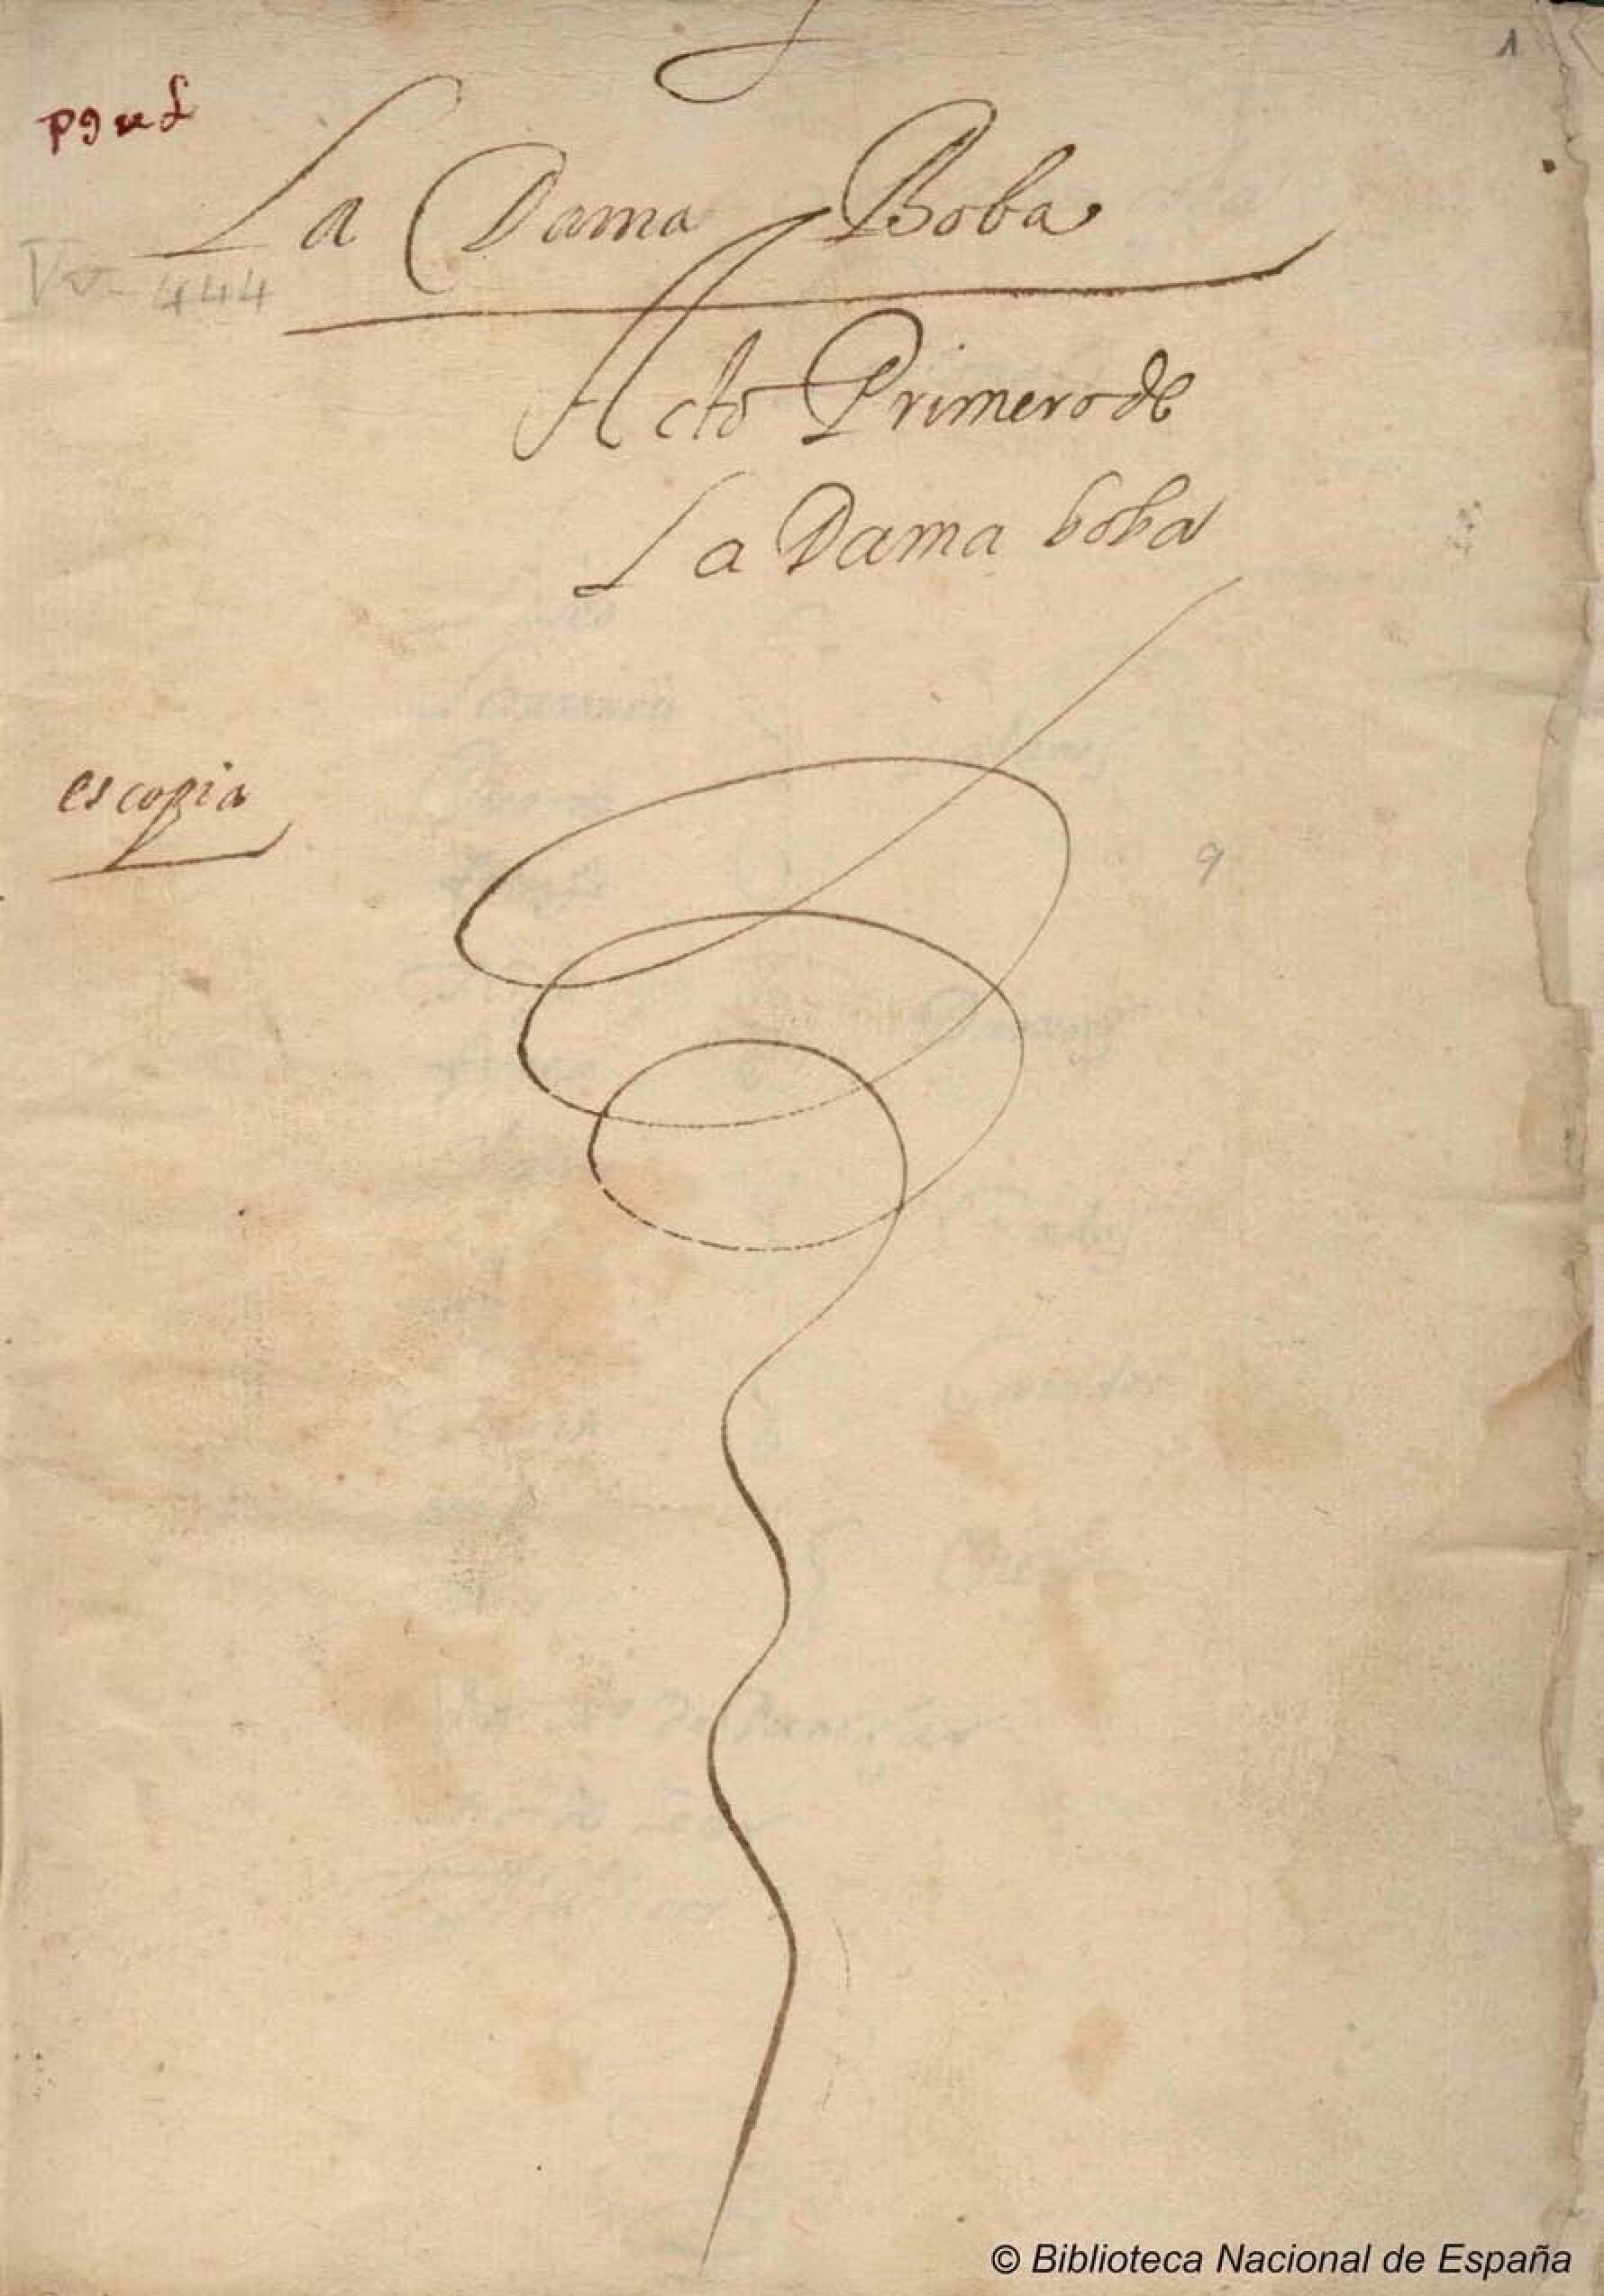 1
La Dama Boba
Vv- 444
Acto Primero de
La Dama boba
es copia
9
© Biblioteca Nacional de España